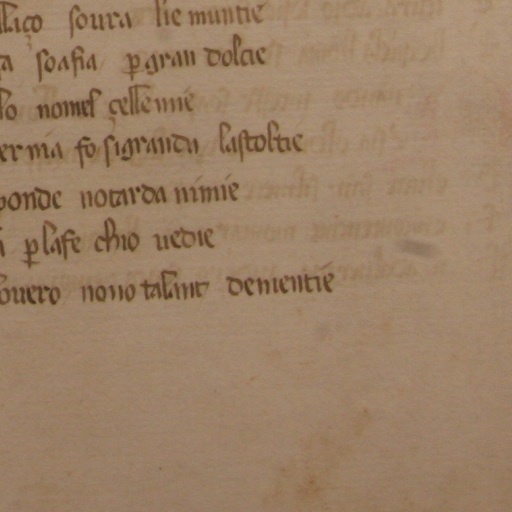 laço soura lie muntie
a soafia ꝑ gran dolcie
lo nomel çelle mie
er mia fo sigrandu lastoltie
ponde notarda nimie
ꝑ lafe chio uedie
ouero nono talant dementie